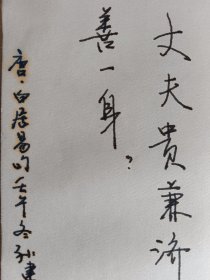 丈夫貴兼济
善一身？
唐·白居易句壬午冬孙建